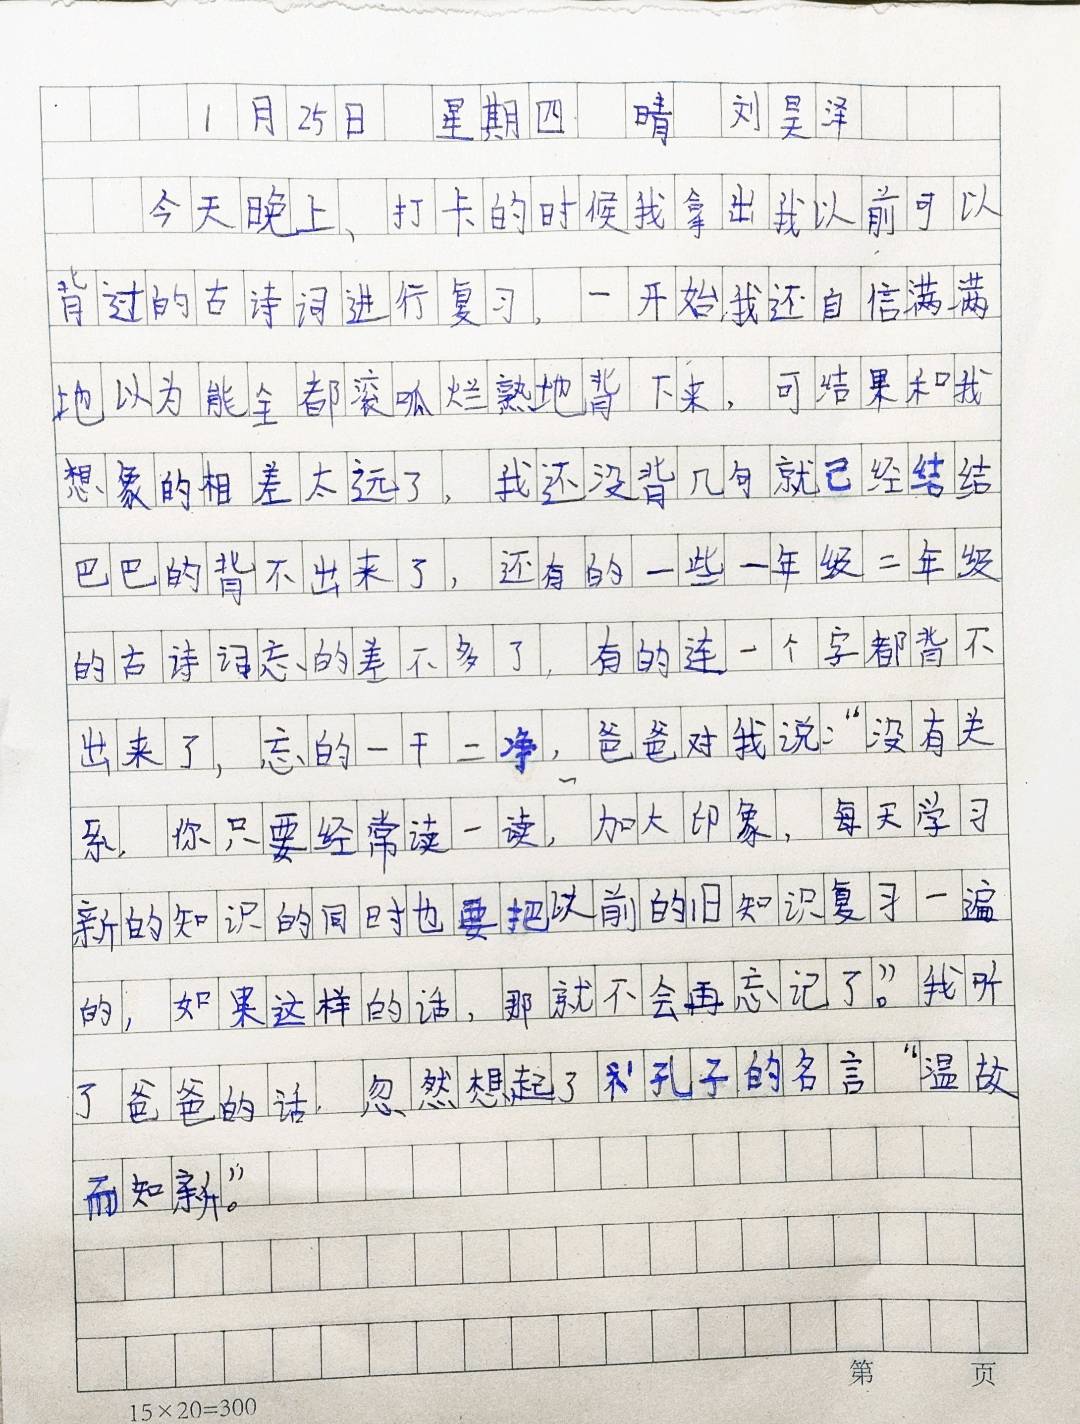 1月25日 星期四 晴 刘昊泽
今天晚上、打卡的时候我拿出我以前可以
背过的古诗词进行复习，一开始我还自信满满
地以为能全都滚呱烂熟地背下来，可结果和我
想象的相差太远了，我还没背几句就已经结结
巴巴的背不出来了，还有的一些一年级二年级
的古诗词忘的差不多了，有的连一个字都背不
出来了，忘的一干二净，爸爸对我说：“没有关
系，你只要经常读一读，加大印象，每天学习
新的知识的同时也要把以前的旧知识复习一遍
的，如果这样的话，那就不会再忘记了”。我听
了爸爸的话，忽然想起了孔子的名言“温故
而知新”。
第 页
15×20=300